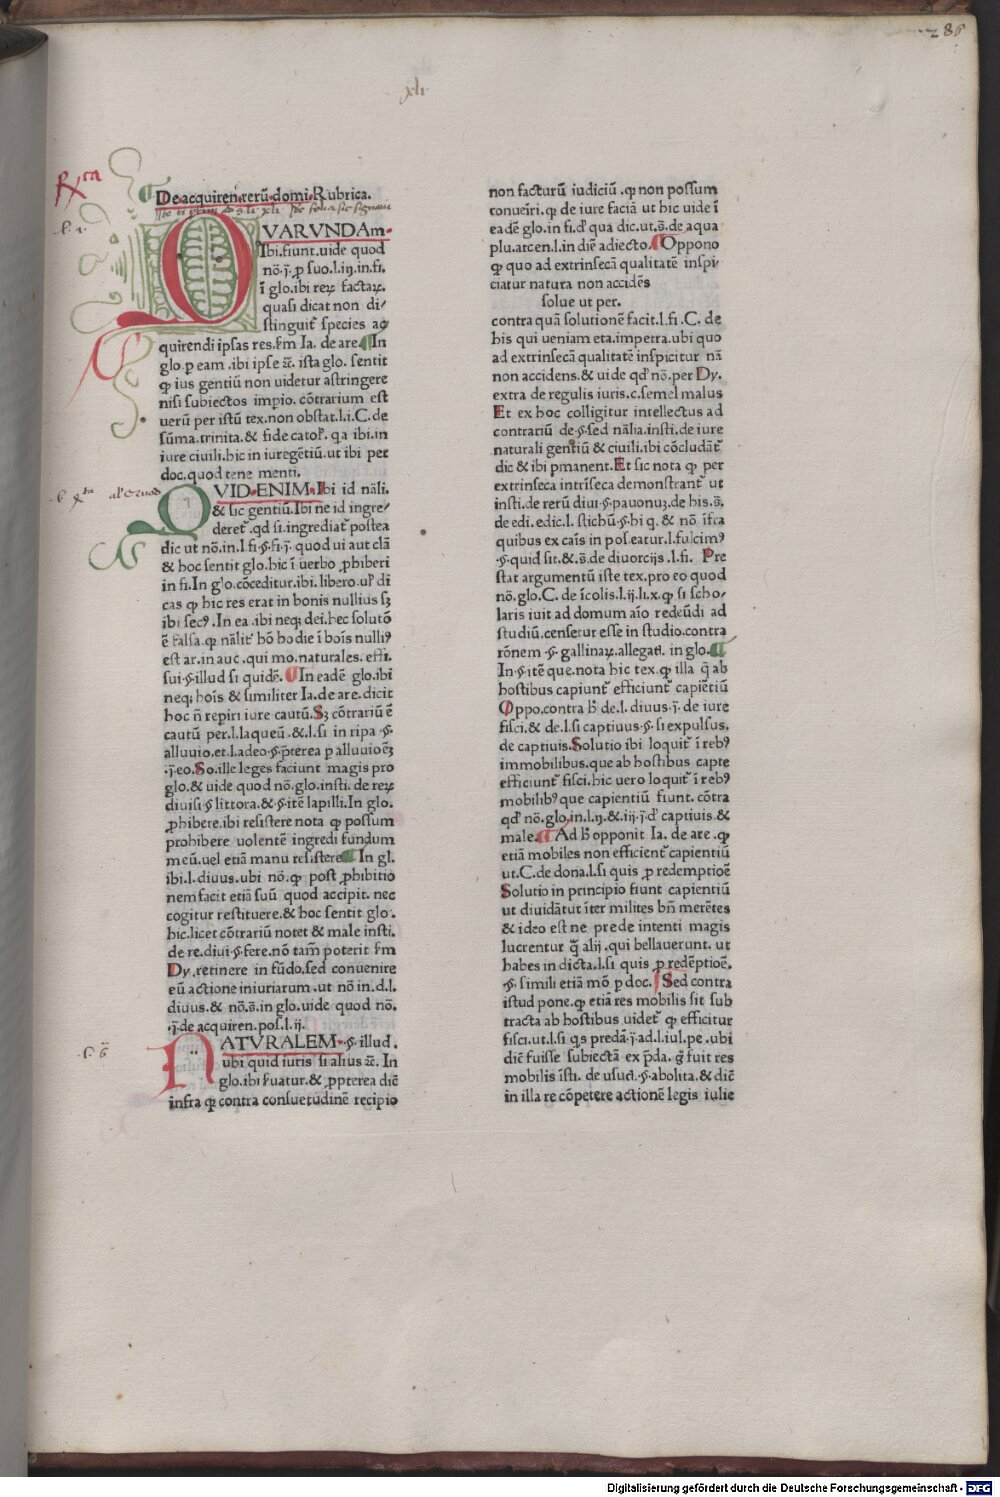 286
xli
Rca
De acquiren. rerū domi. Rubrica.
l. 1.
QVARVNDAm.
Ibi.fiunt.uide quod
nō.j̄.ꝑ suo.l.ij.in.fi.
ī glo.ibi reꝝ factaꝝ.
quasi dicat non di/
stinguit̄ species ac
quirendi ipsas res.ẜm Ia. de are. In
glo.ꝑ eam .ibi ipse ⁊c̄. ista glo. sentit
ꝙ ius gentiū non uidetur astringere
nisi subiectos imꝑio. cōtrarium est
uerū per istū tex.non obstat.l.i.C.de
sūma.trinita.& fide catoł. qa ibi.in
iure ciuili.hic in iuregētiū.ut ibi per
doc.quod tene menti.
QVID ENIM. Ibi id nāli.
& sic gentiū.Ibi ne id ingre/
deret̄ .qd si.ingrediat̄ postea
dic ut nō.in.l.fi.§.fi.j̄. quod ui aut clā
& hoc sentit glo.hic ī uerbo ꝓhiberi
in fi.In glo.cōceditur.ibi.libero.uł di
cas ꝙ hic res erat in bonis nullius sꝫ
ibi secꝰ.In ea .ibi neqꝫ dei.hec solutō
ē falsa.ꝙ nālit̄ hō hodie ī boīs nulliꝰ
est ar.in auc .qui mo.naturales. effi.
sui.§.illud si quidē. In eadē glo.ibi
neqꝫ hoīs & similiter Ia.de are.dicit
hoc n̄ repiri iure cautū.Sꝫ cōtrariū ē
cautū per.l.laqueū .&.l.si in ripa .§.
alluuio.et.l.adeo.§.p̄terea ꝑ alluuioēꝫ
.j̄.eo.So.ille leges faciunt magis pro
glo.& uide quod nō.glo.insti. de reꝝ
diuisi.§.littora.&.§.itē lapilli.In glo.
ꝓhibere.ibi resistere nota ꝙ possum
prohibere uolentē ingredi fundum
meū.uel etiā manu resistere. In gl.
ibi.l.diuus.ubi nō.ꝙ post ꝓhibitio
nem facit etiā suū quod accipit. nec
cogitur restituere.& hoc sentit glo.
hic.licet cōtrariū notet & male insti.
de re.diui.§.fere.nō tam̄ poterit ẜm
Dy.retinere in fūdo.sed conuenire
eū actione iniuriarum.ut nō in.d.l.
diuus.& nō.s̄.in glo.uide quod nō.
.j̄.de acquiren.pos.l.ij.
§. 6
NATVRALEM.§.illud.
ubi quid iuris si alius ⁊c̄. In
glo.ibi ẜuatur.& ꝓpterea diē
infra ꝙ contra consuetudinē recipio
non facturū iudiciū .ꝙ non possum
conueīri.ꝙ de iure faciā ut hic uide ī
eadē glo.in fi.đ qua dic.ut.s̄.de aqua
plu.arcen.l.in diē adiecto. Oppono
ꝙ quo ad extrinsecā qualitatē inspi/
ciatur natura non accidēs
solue ut per.
contra quā solutionē facit.l.fi.C. de
his qui ueniam eta.impetra.ubi quo
ad extrinsecā qualitatē inspicitur nā
non accidens.& uide qđ nō.per Dy.
extra de regulis iuris.c.semel malus
Et ex hoc colligitur intellectus ad
contrariū de.§.sed nālia.insti.de iure
naturali gentiū & ciuili.ibi cōcludāt̄
dic & ibi ꝑmanent.Et sic nota ꝙ per
extrinseca intrīseca demonstrant̄ ut
insti.de rerū diui.§.pauonuꝫ.de his.s̄.
de edi.edic.l.stichū.§.hi q. & nō.īfra
quibus ex caīs in pos.eatur.l.fulcimꝰ
.§.quid sit.&.s̄.de diuorcijs.l.fi. Pre
stat argumentū iste tex.pro eo quod
nō.glo.C. de īcolis.l.ij.li.x.ꝙ si scho/
laris iuit ad domum aīo redeūdi ad
studiū.censetur esse in studio.contra
rōnem .§. gallinaꝝ.allegatī. in glo.
In.§.itē que.nota hic tex.ꝙ illa q̄ ab
hostibus capiunt̄ efficiunt̄ capiētiū
Oppo.contra ħ de.l. diuus.j̄. de iure
fisci.& de.l.si captiuus.§.si expulsus.
de captiuis.Solutio ibi loquit̄ ī rebꝰ
immobilibus.que ab hostibus capte
efficiunt̄ fisci.hic uero loquit̄ ī rebꝰ
mobilibꝰ que capientiū fiunt. cōtra
qđ nō.glo.in.l.ij.&.iij.j̄.đ captiuis.&
male. Ad ħ opponit Ia. de are .ꝙ
etiā mobiles non efficient̄ capientiū
ut.C.de dona.l.si quis ꝑ redemptioē
Solutio in principio fiunt capientiū
ut diuidātur īter milites bn̄ merētes
& ideo est ne prede intenti magis
lucrentur q̄ alij .qui bellauerunt. ut
habes in dicta.l.si quis ꝑ redēptioē.
.§. simili etiā mō ꝑ doc. Sed contra
istud pone.ꝙ etiā res mobilis sit sub
tracta ab hostibus uidet̄ ꝙ efficitur
fisci.ut.l.si qs predā.j̄.ad.l.iul.pe.ubi
diē fuisse subiectā ex p̄da. ḡ fuit res
mobilis īsti. de usuc. §.abolita.& diē
in illa re cōpetere actionē legis iulie
Digitalisierung gefördert durch die Deutsche Forschungsgemeinschaft - DFG